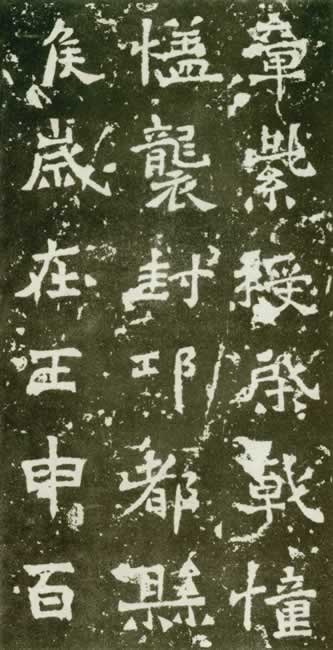 章紫綬棨戟幢
蓋襲封邛都縣
侯歲在壬申百